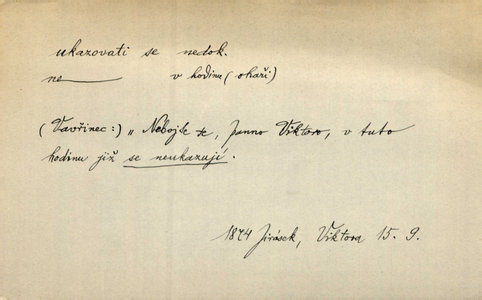 ukazovati se nedok.
ne—— v hodinu (ohaři)
(Vavřinec:) „Nebojte se, Panno Viktoro, v tuto
hodinu již se neukazují.
1874 Jirásek, Viktora 15. 9.